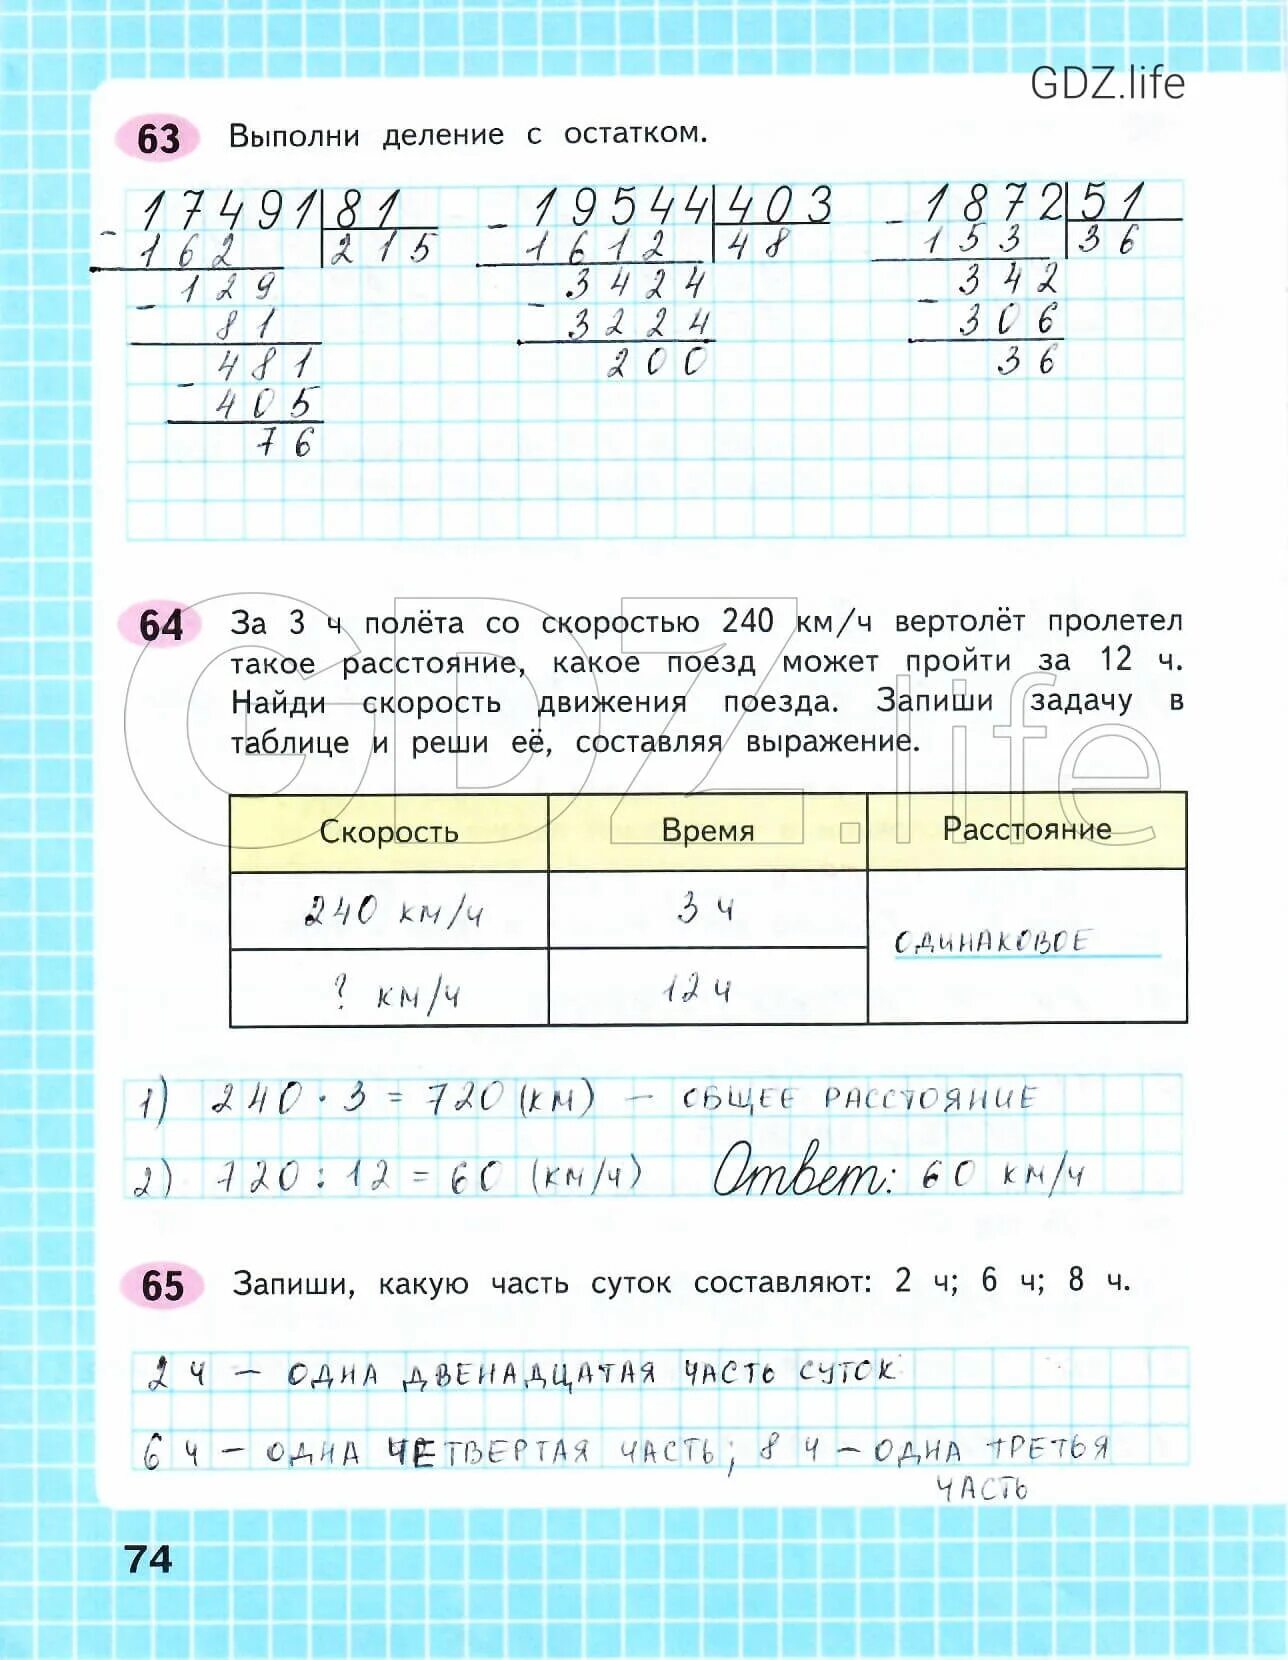 GDZ.life
63 Выполни деление с остатком.
- 17491 81 - 19544 403 - 1872 51
162 215 1612 48 153 36
- 129 - 3424 - 342
81 3224 306
- 481 200 36
405
76
64 За 3 ч полёта со скоростью 240 км/ч вертолёт пролетел
такое расстояние, какое поезд может пройти за 12 ч.
Найди скорость движения поезда. Запиши задачу в
таблице и реши её, составляя выражение.
GDZ.life
Скорость Время Расстояние
240 км/ч 3 ч
одинаковое
? км/ч 12 ч
1) 240 · 3 = 720 (км) — общее расстояние
2) 720 : 12 = 60 (км/ч) Ответ: 60 км/ч
65 Запиши, какую часть суток составляют: 2 ч; 6 ч; 8 ч.
2 ч — одна двенадцатая часть суток
6 ч — одна четвертая часть; 8 ч — одна третья
часть
74